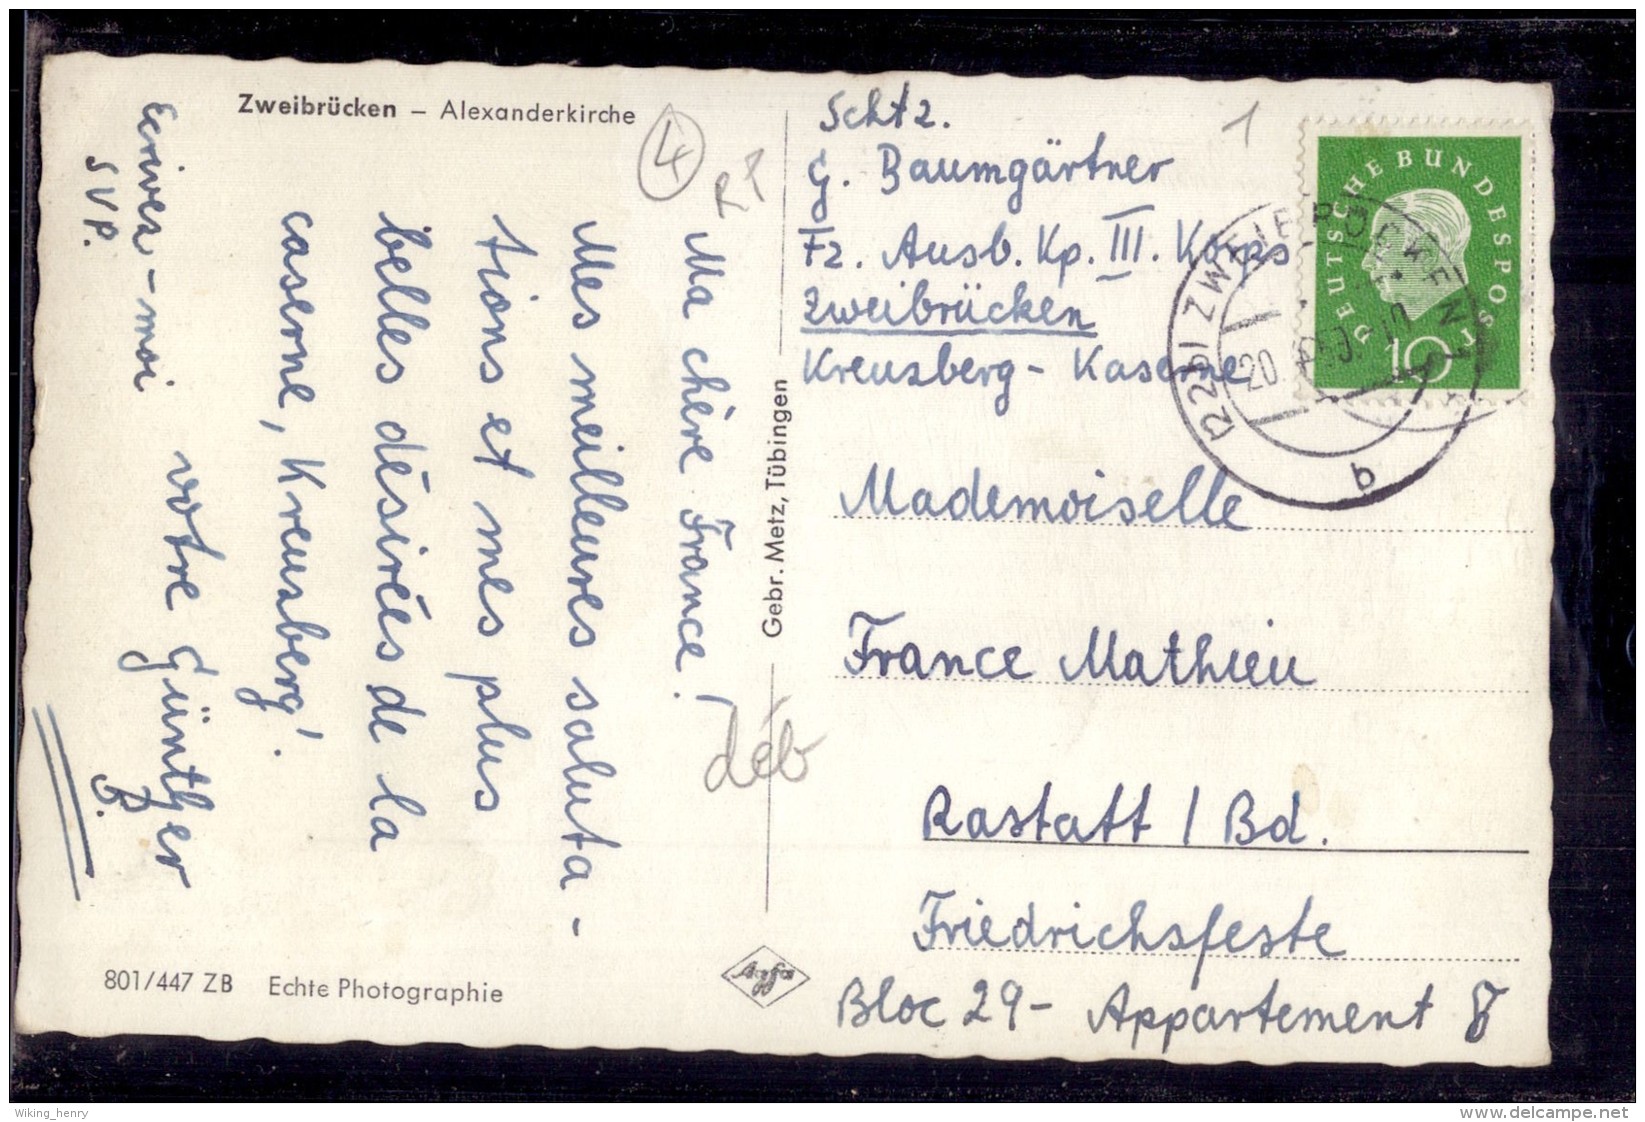 Zweibrücken – Alexanderkirche
4
RP
1
Schtz.
G. Baumgärtner
Fz. Ausb. Kp. III. Korps
Zweibrücken
Kreuzberg - Kaserne
DEUTSCHE BUNDESPOST
10
(22b) ZWEIBRÜCKEN 1
20.
b
Mademoiselle
France Mathieu
Rastatt / Bd.
Friedrichsfeste
Bloc 29- Appartement 8
Ma chère France!
Mes meilleures saluta-
tions et mes plus
belles désirées de la
caserne, Kreuzberg!
votre Günther
B.
Ecrivez-moi
SVP.
déb
Gebr. Metz, Tübingen
Agfa
801/447 ZB Echte Photographie
Wiking_henry
www.delcampe.net